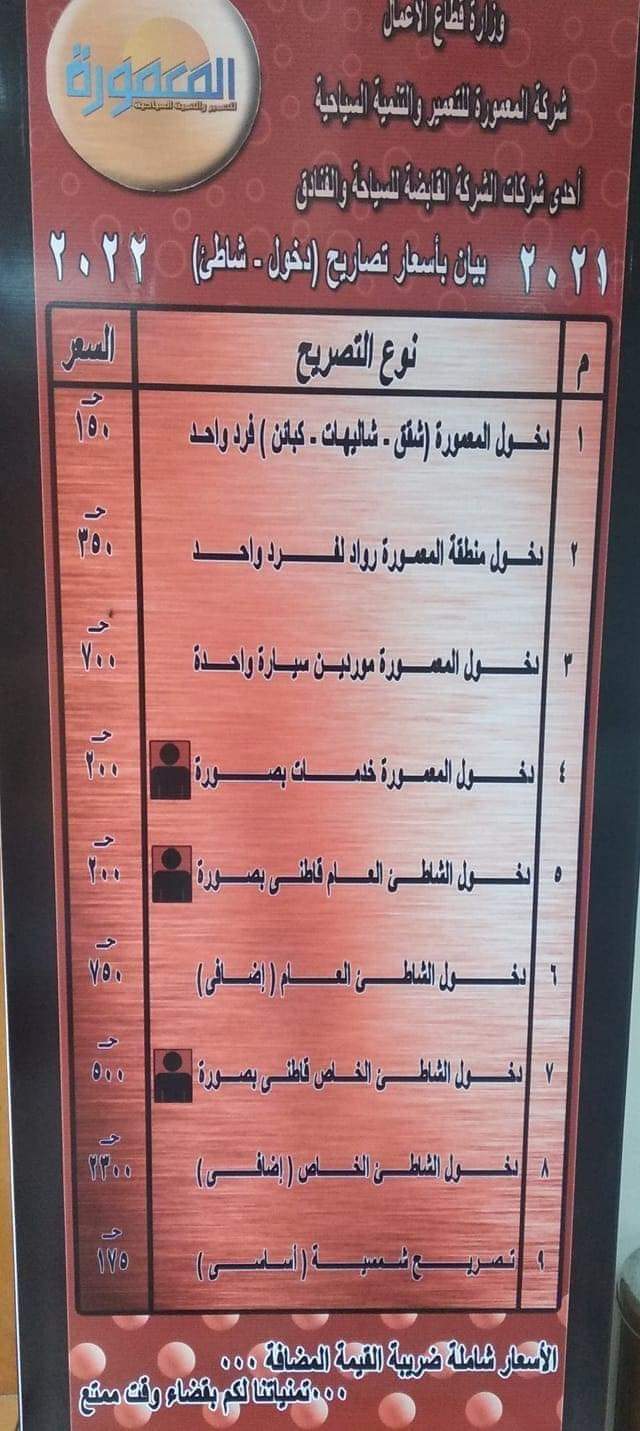 وزارة قطاع الأعمال
المعمورة
للتعمير والتنمية السياحية
شركة المعمورة للتعمير والتنمية السياحية
أحدى شركات الشركة القابضة للسياحة والفنادق
٢٠٢١ بيان بأسعار تصاريح (دخول - شاطئ) ٢٠٢٢
م نوع التصريح السعر
١ دخول المعمورة (شقق - شاليهات - كبائن) فرد واحد ١٥٠ جـ
٢ دخول منطقة المعمورة رواد لفرد واحد ٣٥٠ جـ
٣ دخول المعمورة موردين سيارة واحدة ٧٠٠ جـ
٤ دخول المعمورة خدمات بصورة ٢٠٠ جـ
٥ دخول الشاطئ العام قاطنى بصورة ٢٠٠ جـ
٦ دخول الشاطئ العام (إضافى) ٧٥٠ جـ
٧ دخول الشاطئ الخاص قاطنى بصورة ٥٠٠ جـ
٨ دخول الشاطئ الخاص (إضافى) ٢٣٠٠ جـ
٩ تصريح شمسية (أساسى) ١٧٥ جـ
الأسعار شاملة ضريبة القيمة المضافة ...
... تمنياتنا لكم بقضاء وقت ممتع